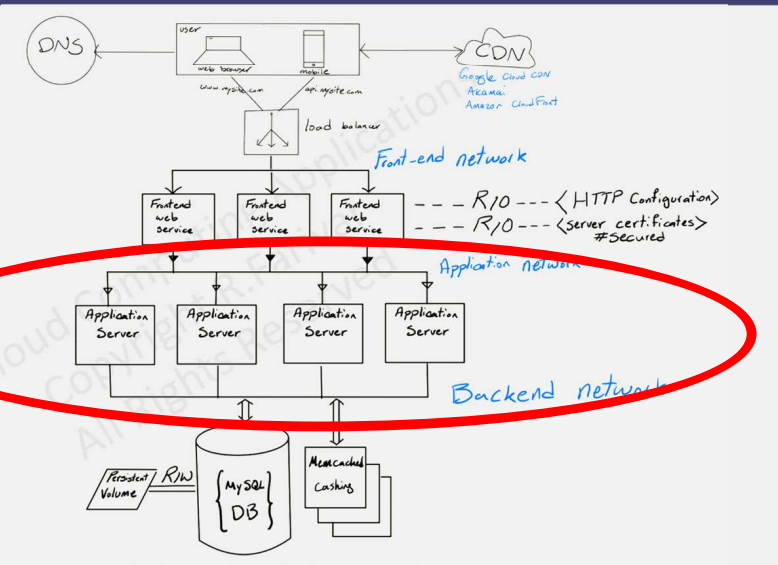 DNS
user
web browser
mobile
CDN
Google Cloud CDN
Akamai
Amazon CloudFront
www.mysite.com
api.mysite.com
load balancer
Front-end network
Frontend
web
service
Frontend
web
service
Frontend
web
service
--- R/O --- <HTTP Configuration>
--- R/O --- <server certificates>
#Secured
Application network
Application
Server
Application
Server
Application
Server
Application
Server
Backend network
Persistent
Volume
R/W
{MySQL
DB}
Memcached
Cashing
Cloud Computing Application
Copyright R.Fariya
All Rights Reserved